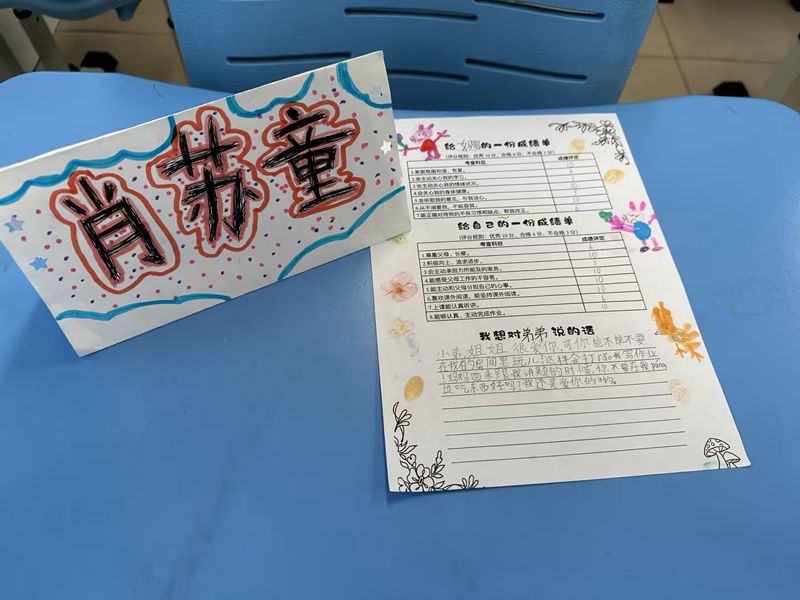 肖苏童
给妈妈的一份成绩单
(评分规则:优秀 10 分,合格 6 分,不合格 3 分)
考查科目 成绩评定
1.家庭氛围和谐、有爱。 10
2.会主动关心我的学习。
3.会主动关心我的情绪状况。 10
4.会关心我的身体健康。 10
5.会听取我的意见,与我谈心。 10
6.从不溺爱我,不纵容我。
7.能正确对待我的不良习惯和缺点,帮我改正。
给自己的一份成绩单
(评分规则:优秀 10 分,合格 6 分,不合格 3 分)
考查科目 成绩评定
1.尊重父母,长辈。 6
2.积极向上,追求进步。 10
3.会主动承担力所能及的家务。
4.能感受父母工作的不容易。 10
5.能主动和父母分担自己的心事。 10
6.喜欢课外阅读,能坚持课外阅读。 10
7.上课能认真听讲。 6
8.能够认真、主动完成作业。 10
我想对弟弟说的话
小弟,姐姐很爱你,可你能不能不要
在我的房间里玩儿!这样会打rǎo我写作业
!妈妈回来跟我讲题的时候,你不要在我páng
边吃东西好吗?我还是爱你的哟。